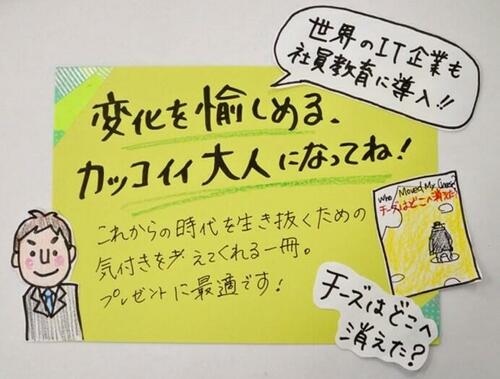 世界のIT企業も
社員教育に導入!!
変化を愉しめる、
カッコイイ大人になってね!
これからの時代を生き抜くための
気付きを考えてくれる一冊。
プレゼントに最適です!
Who Moved My Cheese
チーズはどこへ消えた
チーズはどこへ
消えた?